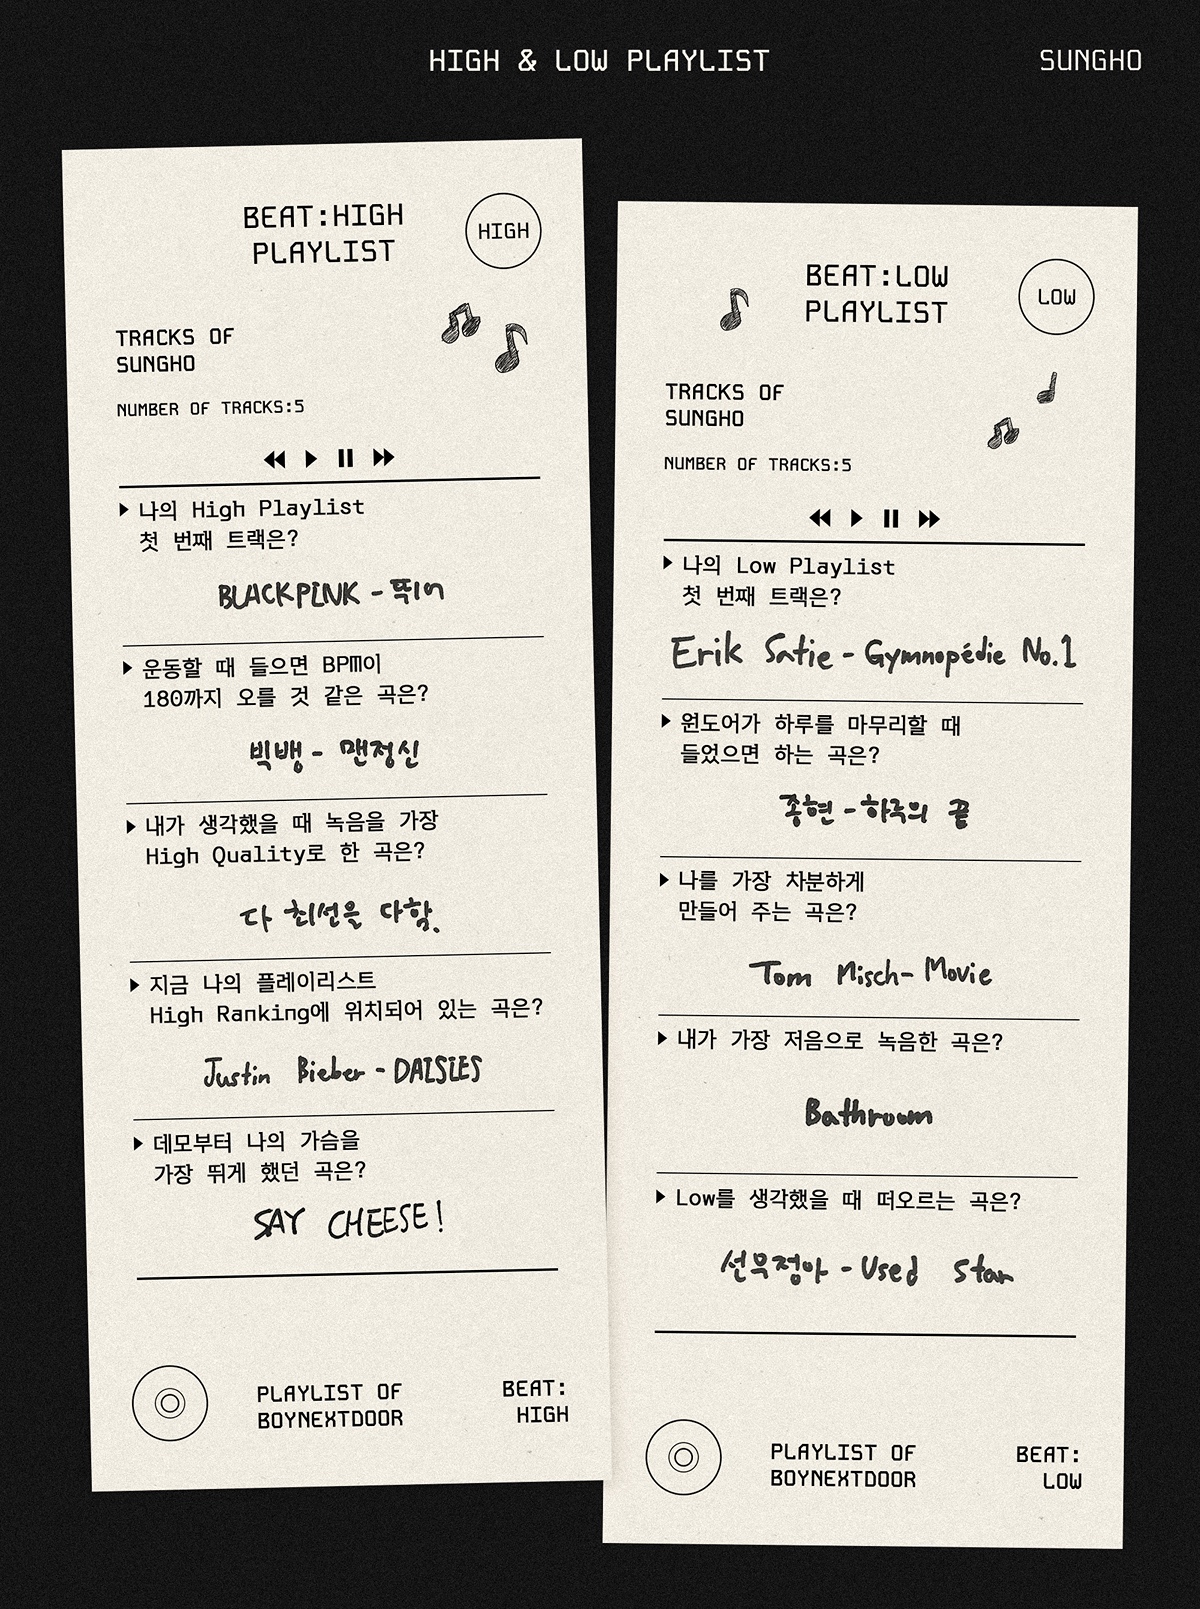 HIGH & LOW PLAYLIST
SUNGHO
BEAT:HIGH
PLAYLIST
HIGH
TRACKS OF
SUNGHO
NUMBER OF TRACKS:5
나의 High Playlist
첫 번째 트랙은?
BLACKPINK - 뛰어
운동할 때 들으면 BPM이
180까지 오를 것 같은 곡은?
빅뱅 - 맨정신
내가 생각했을 때 녹음을 가장
High Quality로 한 곡은?
다 최선을 다함.
지금 나의 플레이리스트
High Ranking에 위치되어 있는 곡은?
Justin Bieber - DAISIES
데모부터 나의 가슴을
가장 뛰게 했던 곡은?
SAY CHEESE!
PLAYLIST OF
BOYNEXTDOOR
BEAT:
HIGH
BEAT:LOW
PLAYLIST
LOW
TRACKS OF
SUNGHO
NUMBER OF TRACKS:5
나의 Low Playlist
첫 번째 트랙은?
Erik Satie - Gymnopédie No.1
원도어가 하루를 마무리할 때
들었으면 하는 곡은?
종현 - 하루의 끝
나를 가장 차분하게
만들어 주는 곡은?
Tom Misch - Movie
내가 가장 저음으로 녹음한 곡은?
Bathroom
Low를 생각했을 때 떠오르는 곡은?
선우정아 - Used Star
PLAYLIST OF
BOYNEXTDOOR
BEAT:
LOW